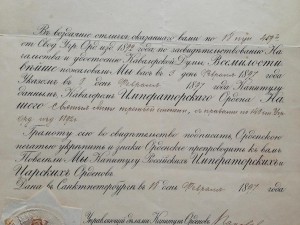 Въ воздаяніе отличія, оказаннаго вами по
от 1892 года по засвидѣтельствованію На-
чальства и удостоенію Кавалерской Думы, Всемилости-
вѣйше пожаловали Мы васъ въ 3 день Февраля 1897 года
Указомъ въ 3 день Февраля 1897 года Капитулу
даннымъ, Кавалеромъ Императорскаго Ордена На-
шего Святыя Анны степени
Грамоту сію во свидѣтельство подписать, Орденскою
печатью укрѣпить и знаки Орденскіе препроводить къ вамъ
Повелѣли Мы Капитулу Россійскихъ Императорскихъ и
Царскихъ Орденовъ.
Дана въ Санктпетербургѣ въ день Февраля 1897 года
Управляющій дѣлами Капитула Орденовъ